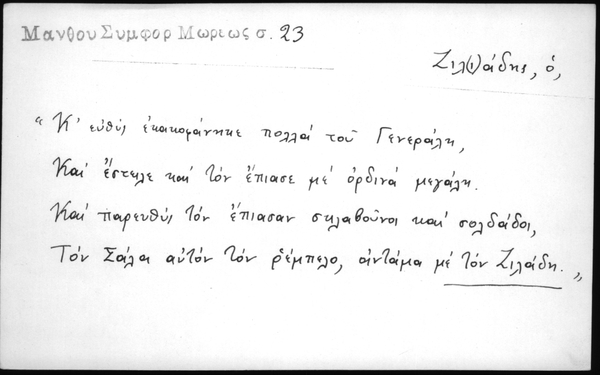 Μανθου Συμφορ Μωριως σ. 23
Ζιλ(ι)άδης, ὁ,
"Κ' εὐθύς ἐκακοφάνηκε πολλά τοῦ Γενεράλη,
Καί ἔστειλε καί τόν ἔπιασε μέ ὀρδινά μεγάλη.
Καί παρευθύς τόν ἔπιασαν σκλαβοῦνοι καί σολδάδοι,
Τόν Σάλα αὐτόν τόν ῥέμπελο, ἀντάμα μέ τόν Ζιλάδη."